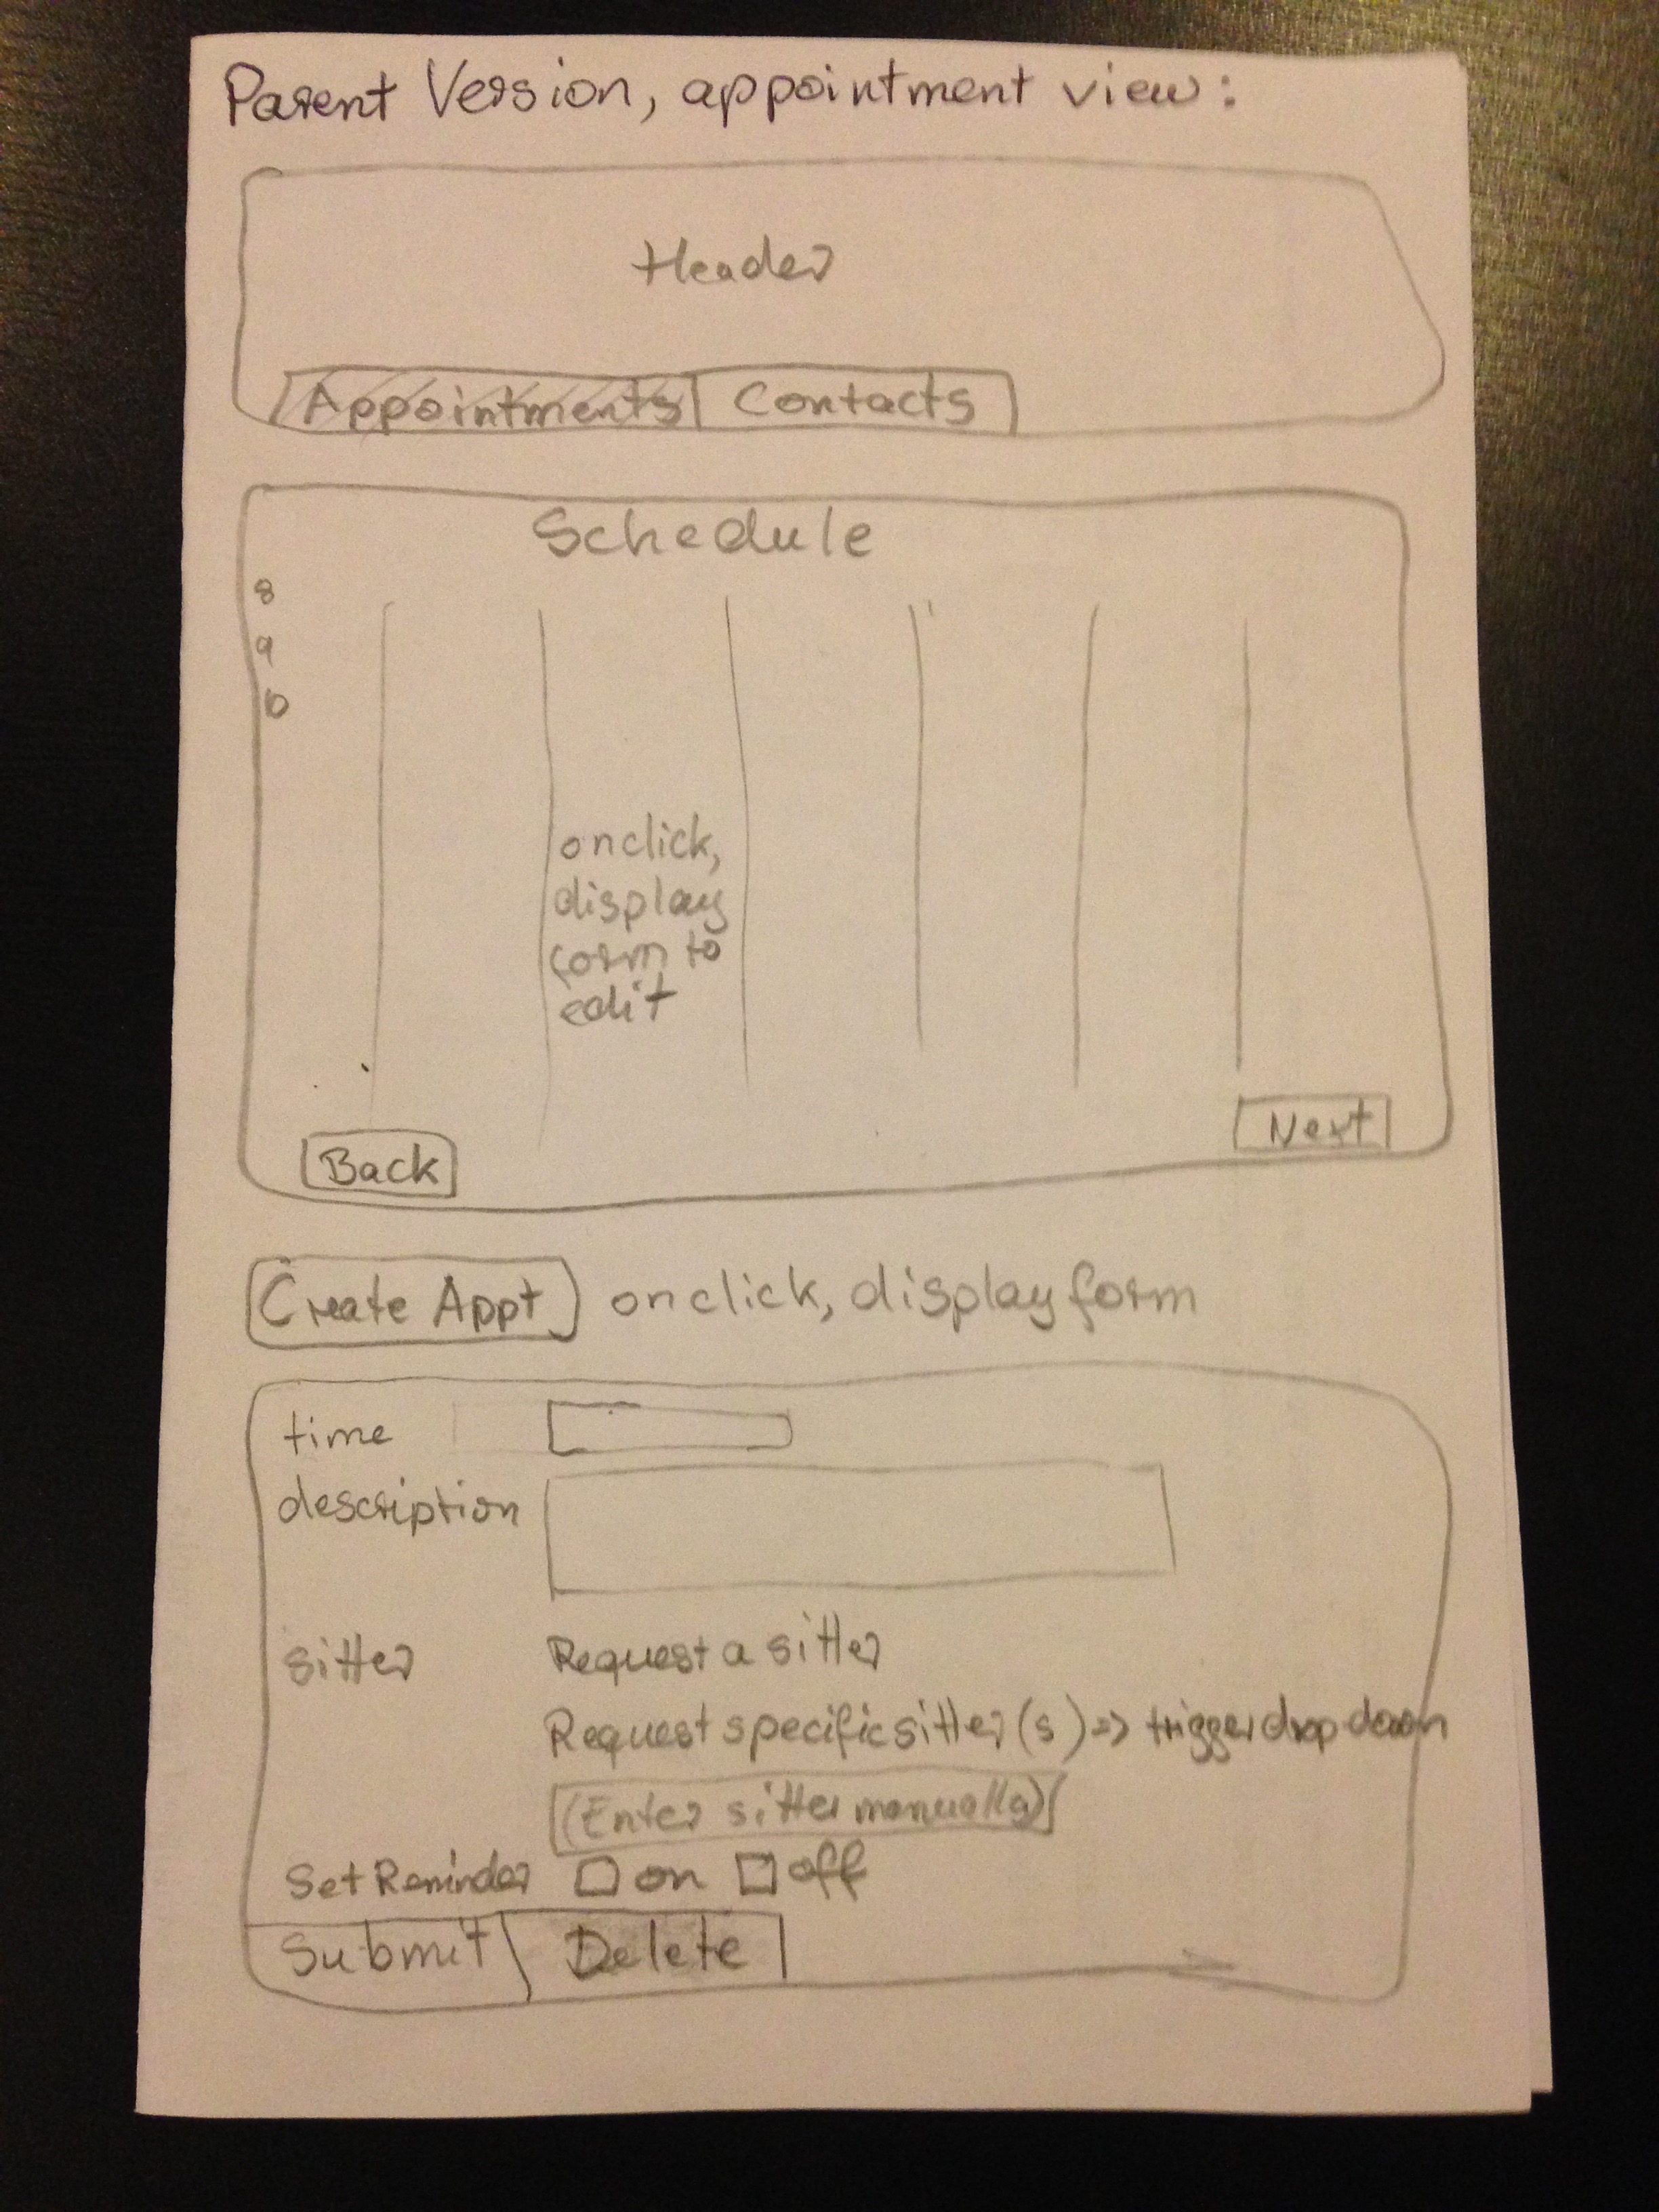 Parent Version, appointment view:
Header
Appointments Contacts
Schedule
8
9
10
onclick,
display
form to
edit
Next
Back
Create Appt onclick, display form
time
description
sitter Request a sitter
Request specific sitter(s) => trigger drop down
(Enter sitter manually)
Set Reminder on off
Submit Delete